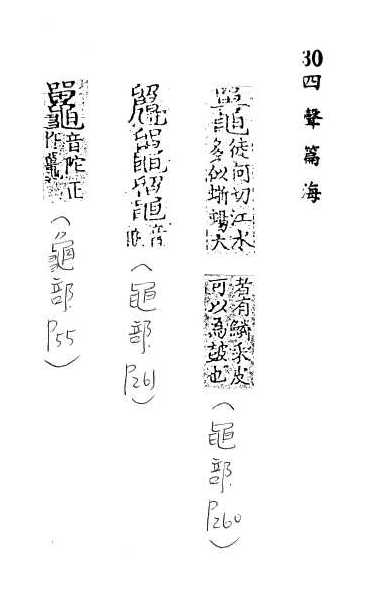 30四聲篇海
鼉徒何切江水
多似蜥蜴大
者有鱗彩皮
可以為鼓也
（黽部
P260）
音
（黽部
P261）
音陀正
作鼉
（龜部
P55）